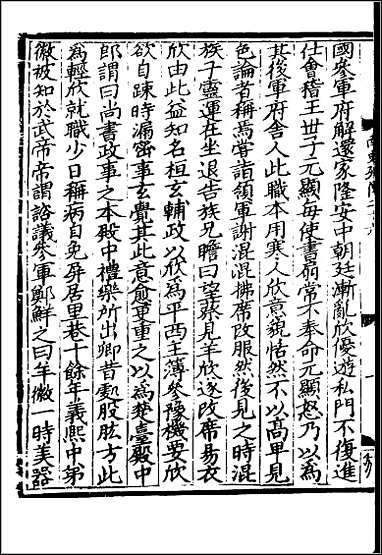 國參軍府解還家隆安中朝廷漸亂欣優遊私門不復進
仕會稽王世子元顯每使書扇常不奉命元顯怒乃以為
其後軍府舍人此職本用寒人欣意貌恬然不以高卑見
色論者稱焉嘗詣領軍謝混混拂席改服然後見之時混
族子靈運在坐退告族兄瞻曰望蔡見羊欣遂改席易衣
欣由此益知名桓玄輔政以欣為平西主簿參豫機要欣
欲自踈時漏密事玄覺其此意愈重之以為楚臺殿中
郎謂曰尚書政事之本殿中禮樂所出卿昔處股肱方此
為輕欣就職少日稱病自免屏居里巷十餘年義熙中弟
徽被知於武帝帝謂諮議參軍鄭鮮之曰羊徽一時美器